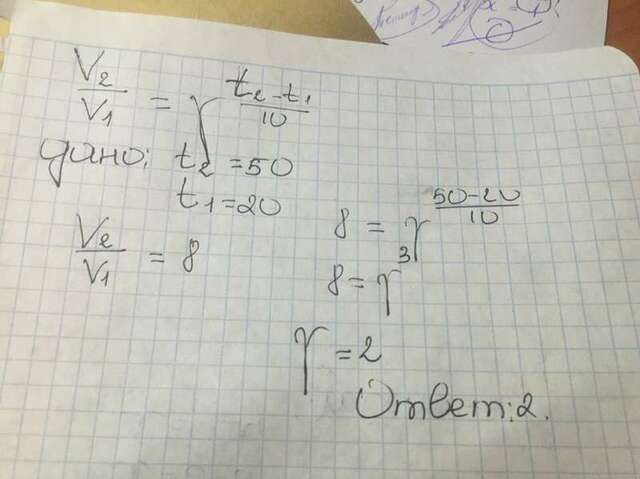 V₂/V₁ = γ^((t₂-t₁)/10)
дано: t₂ = 50
t₁ = 20
V₂/V₁ = 8
8 = γ^((50-20)/10)
8 = γ³
γ = 2
Ответ: 2.